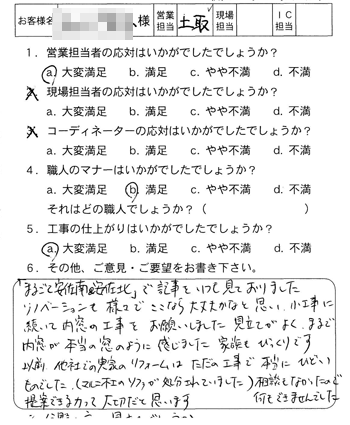 お客様名 様 営業担当 土取 現場担当 ＩＣ担当
１．営業担当者の応対はいかがでしたでしょうか？
a. 大変満足 b. 満足 c. やや不満 d. 不満
２．現場担当者の応対はいかがでしたでしょうか？
a. 大変満足 b. 満足 c. やや不満 d. 不満
３．コーディネーターの応対はいかがでしたでしょうか？
a. 大変満足 b. 満足 c. やや不満 d. 不満
４．職人のマナーはいかがでしたでしょうか？
a. 大変満足 b. 満足 c. やや不満 d. 不満
それはどの職人でしょうか？（ ）
５．工事の仕上がりはいかがでしたでしょうか？
a. 大変満足 b. 満足 c. やや不満 d. 不満
６．その他、ご意見・ご要望をお書き下さい。
「まるごと安佐南安佐北」で記事をいつも見ておりました
リノベーションも様々でここなら大丈夫かなと思い、小工事に
続いて内窓の工事をお願いしました 見立てがよく、まるで
内窓が本当の窓のように感じました 家族もびっくりです
以前 他社での実家のリフォームはただの工事で本当にひどい
ものでした。（マルニ木工のソファが処分されていました）相談もなかったので
提案できる力って大切だと思います 何もできませんでした